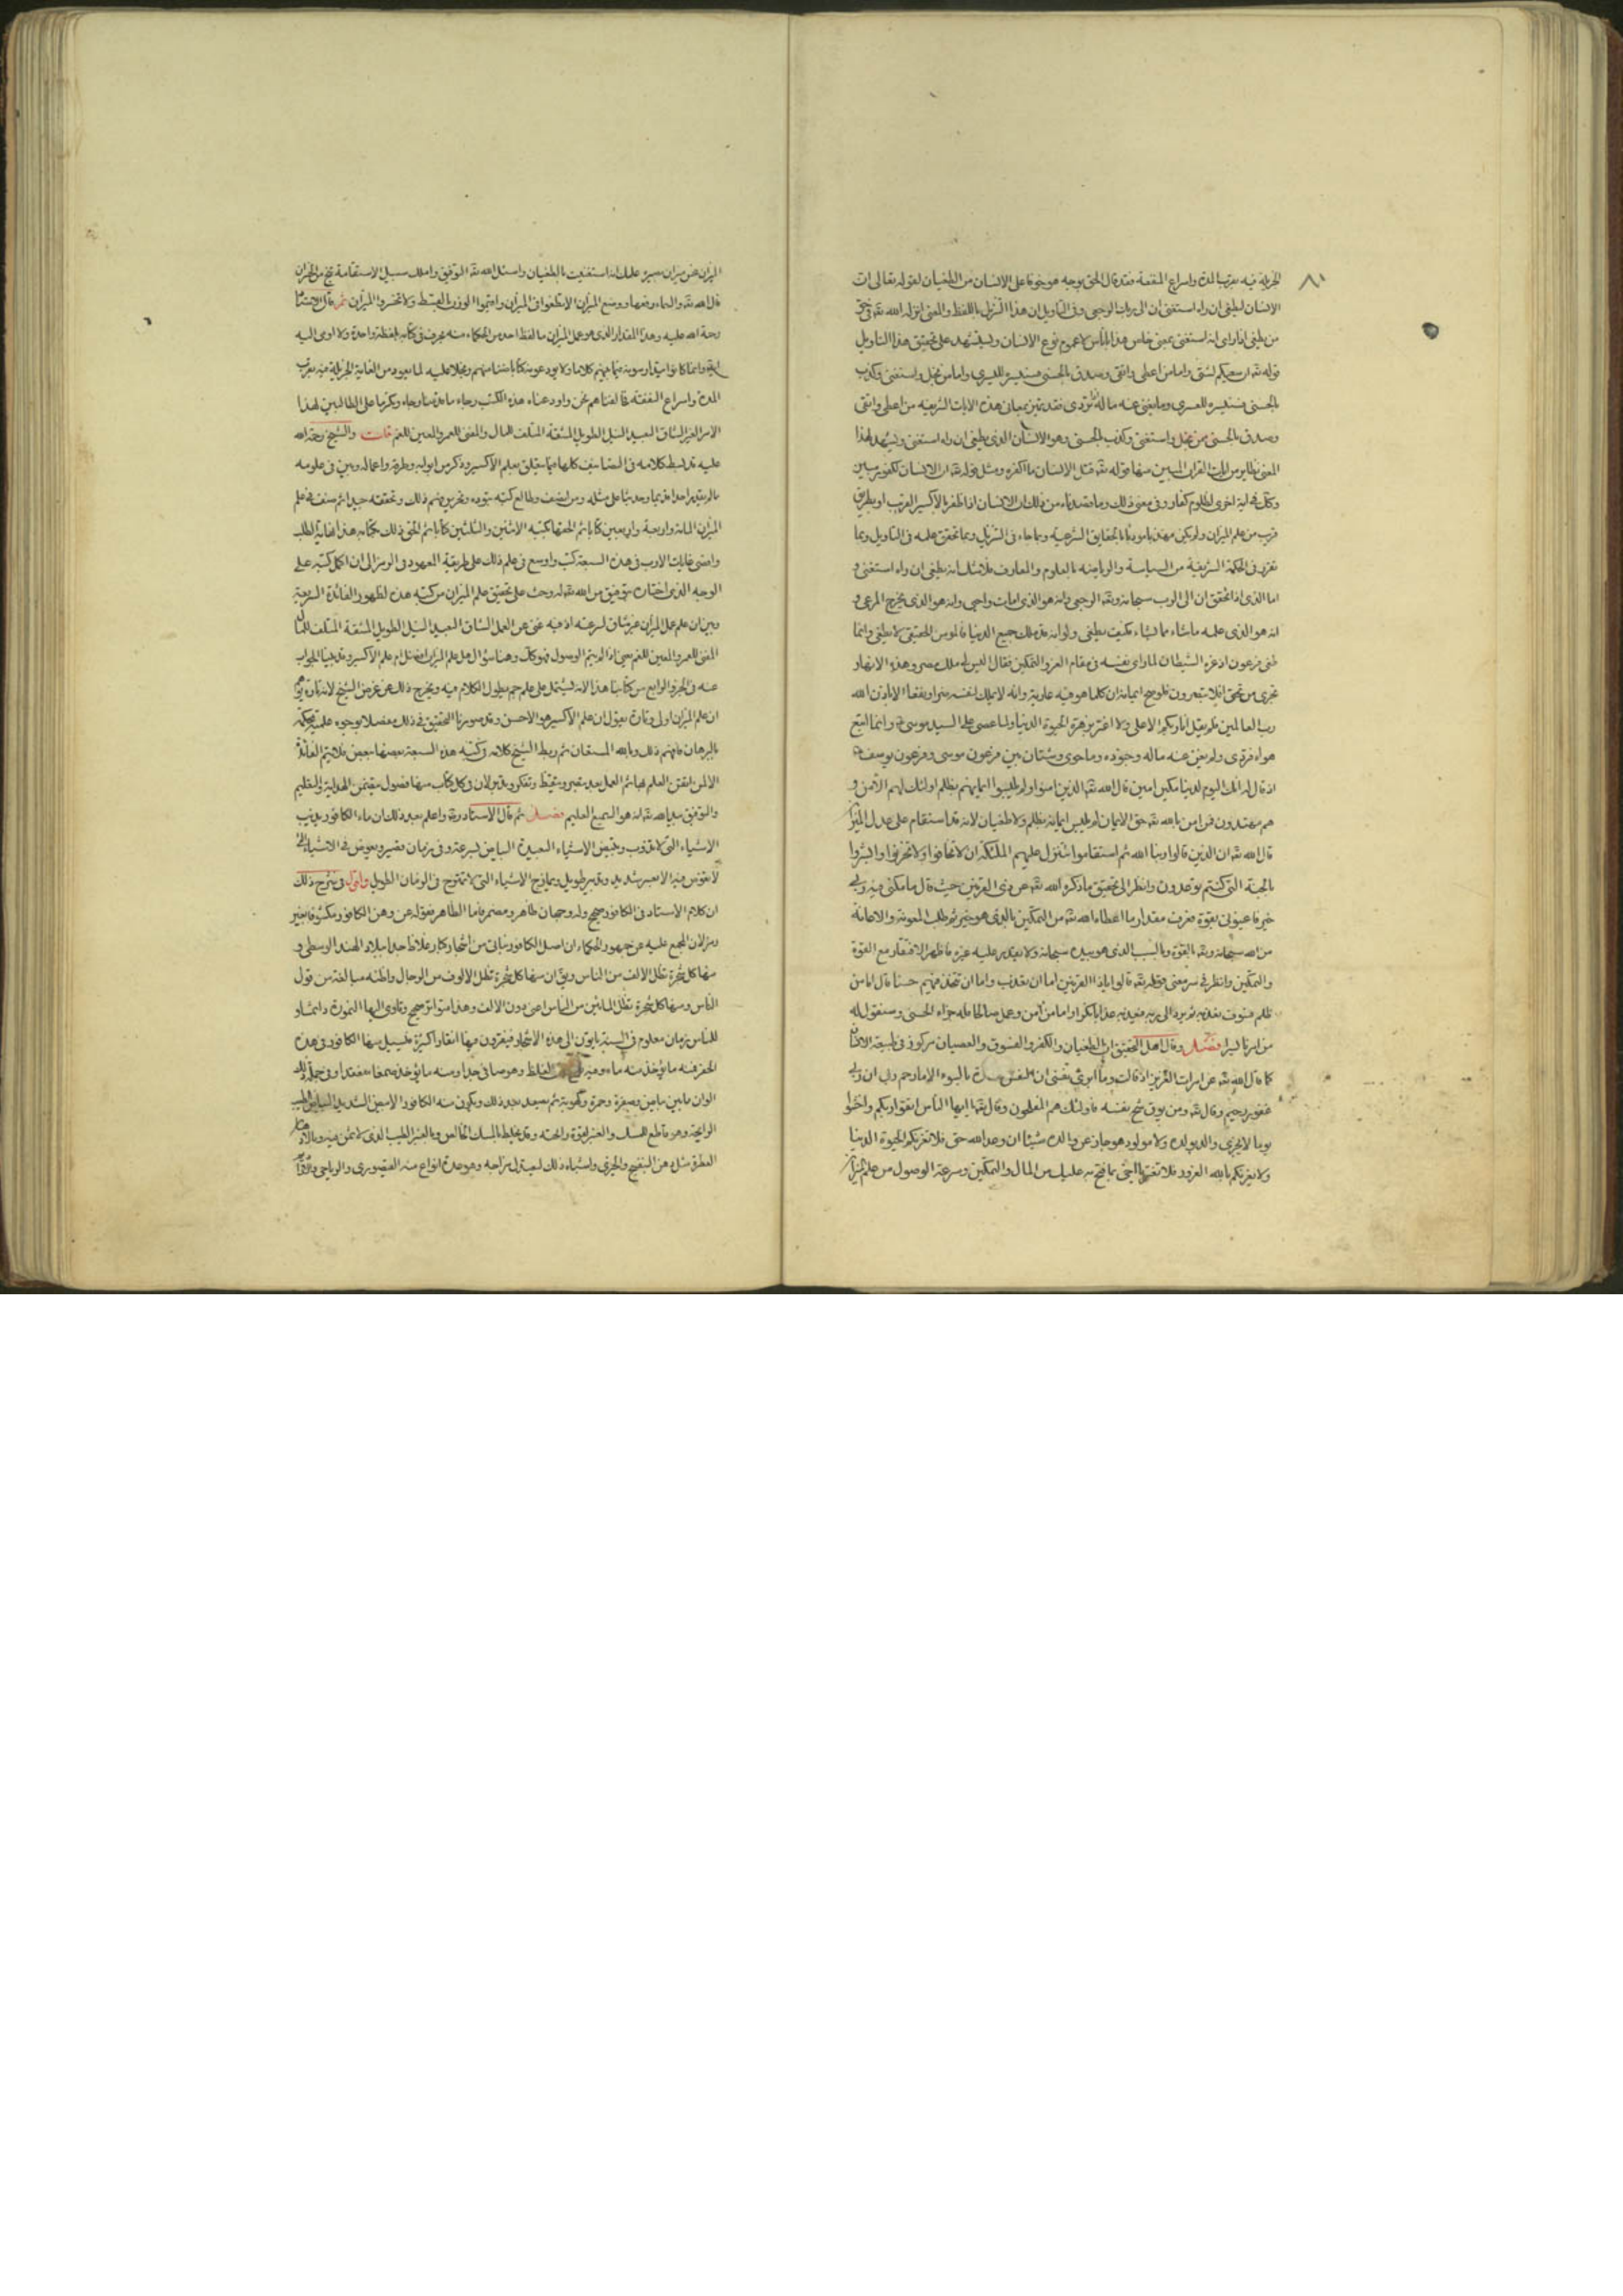 ٨٠
الجزيلة فيه بقرب المدة واسراع المنفعة فقد قال الحق بوجه هو خوفا على الانسان من الطغيان لقوله تعالى ان
الانسان ليطغى ان راه استغنى ان الى ربك الرجعى وفى التاويل ان هذا التنزيل باللفظ والمعنى انزله الله تعالى فى حق
من يطغى اذا راى انه استغنى بمعنى خاص هذا بالناس لا عموم نوع الانسان ويستشهد على تحقيق هذا التاويل
قوله تعالى ان سعيكم لشتى واما من اعطى واتقى وصدق بالحسنى فسنيسره لليسرى واما من بخل واستغنى وكذب
بالحسنى فسنيسره للعسرى وما يغنى عنه ماله اذا تردى فقد تميز بمعانى هذه الايات الشريفه من اعطى واتقى
وصدق بالحسنى ممن بخل واستغنى وكذب بالحسنى وهو الانسان الذى يطغى ان راه استغنى ويشهد لهذا
المعنى نظاير من ايات القران المبين منها قوله تعالى قتل الانسان ما اكفره ومثل قوله تعالى ان الانسان لكفور مبين
وكان فى اية اخرى لظلوم كفار وفى معنى ذلك وما قصدناه من ذلك ان الانسان اذا ظفر بالاكسير القريب او بطريق
قريب من علم الميزان ولم يكن مهذبا مؤدبا بالحقايق الشرعية وبما جاء فى التنزيل وبما تحقق علمه فى التاويل وبما
تقرر فى الحكمة الشريفة من السياسة والرياضه بالعلوم والمعارف فلا شك انه يطغى ان راه استغنى و
اما الذى اذا تحقق ان الى الرب سبحانه وتعالى الرجعى وانه هو الذى امات واحيى وانه هو الذى يخرج المرعى و
انه هو الذى علمه ما شاء مما يشاء فكيف يطغى ولو انه قد ملك جميع الدنيا فالمومن الحقيقى لا يطغى وانما
طغى فرعون اذ غره الشيطان لما راى نفسه فى مقام العز والتمكين فقال اليس لى ملك مصر وهذه الانهار
تجرى من تحتى افلا تبصرون فلو صح ايمانه ان كلما هو فيه عارية وانه لا يملك لنفسه ضرا ونفعا الا باذن الله
رب العالمين فلم يقل انا ربكم الاعلى ولا اغتر بزهرة الحيوة الدنيا ولما عصى على السيد موسى وانما اتبع
هواه فتردى ولم يغن عنه ماله وجنوده وما حوى وشتان بين فرعون موسى وفرعون يوسف
اذ قال له انك اليوم لدينا مكين امين قال الله تعالى الذين امنوا ولم يلبسوا ايمانهم بظلم اولئك لهم الامن و
هم مهتدون فمن امن بالله تعالى حق الايمان لم يلبس ايمانه بظلم ولا طغيان لانه قد استقام على عدل الميزان
قال الله تعالى ان الذين قالوا ربنا الله ثم استقاموا تتنزل عليهم الملئكة ان لا تخافوا ولا تحزنوا وابشروا
بالجنة التى كنتم توعدون وانظر الى تحقيق ما ذكره الله تعالى عن ذى القرنين حيث قال ما مكنى فيه ربى
خير فاعينونى بقوة فعرف مقدار ما اعطاه الله تعالى من التمكين بالذى هو خير ثم طلب المعونة والاعانة
من الله سبحانه وتعالى بالقوة وبالسبب الذى هو بيده سبحانه ولا يقدر عليه غيره فاظهر الافتقار مع القوة
والتمكين وانظر فى سر معنى قوله تعالى قالوا يا ذا القرنين اما ان تعذب واما ان تتخذ فيهم حسنا قال اما من
ظلم فسوف نعذبه ثم يرد الى ربه فيعذبه عذابا نكرا واما من امن وعمل صالحا فله جزاء الحسنى وسنقول له
من امرنا يسرا فصل وقال اهل التحقيق ان الطغيان والكفر والفسوق والعصيان مركوز فى طبيعة الانسان
كما قال الله تعالى عن امراة العزيز اذ قالت وما ابرئ نفسى ان النفس لامارة بالسوء الا ما رحم ربى ان ربى
غفور رحيم وقال تعالى ومن يوق شح نفسه فاولئك هم المفلحون وقال تعالى يا ايها الناس اتقوا ربكم واخشوا
يوما لا يجزى والد عن ولده ولا مولود هو جاز عن والده شيئا ان وعد الله حق فلا تغرنكم الحيوة الدنيا
ولا يغرنكم بالله الغرور فلا تغتر يا اخى بما فتح به عليك من المال والتمكين وسرعة الوصول من علم الميزان
الميزان عن ميزان سيره عليك اذا استغنيت بالطغيان واسئل الله تعالى التوفيق واسلك سبيل الاستقامة تنج من الخسران
قال الله تعالى والسماء رفعها ووضع الميزان الا تطغوا فى الميزان واقيموا الوزن بالقسط ولا تخسروا الميزان ثم قال الاستاد
رحمة الله عليه وهذا المقدار الذى هو عمل الميزان ما لفظ احد من الحكماء منه بحرف فى كتابه بلفظة واحدة ولا اومى اليه
وانما كانوا يتدارسونه فيما بينهم كلاما ولا يودعونه كتابا ضنا منهم وبخلا عليه لما يعود من الغاية الجزيلة فيه بقرب
المدة واسراع المنفعة فالفناهم نحن واودعناه هذه الكتب رجاء ما عند الله وتكرما على الطالبين لهذا
الامر العزيز الشاق البعيد النيل الطويل المشقة المتلف للمال والمفنى للعمر والمعين للغم قلت والشيخ رحمه الله
عليه قد بسط كلامه فى التصانيف كلها فيما يتعلق بعلم الاكسير وذكر من ابوابه وطرقه واعماله وبين فى علومه
ما لم يتقدم احد قديما وحديثا على مثله ومن انصف وطالع كتبه بتوده وتمرين فهم ذلك وتحققه جيدا ثم صنف فى علم
الميزان المائة واربعة واربعين كتابا ثم الحقها كتبه الاثنين والثلثين كتابا ثم الحق ذلك بكتابه هذا نهاية الطلب
واقصى غايات الارب فى هذه السبعة كتب واوسع فى علم ذلك على طريقة المعهود فى الرمز الى ان اكمل كتبه على
الوجه الذى اختاره بتوفيق من الله تعالى له وحث على تحقيق علم الميزان من كتبه هذه لظهور الفائدة السريعة
وبين ان علم عمل الميزان غير شاق لسرعته اذ فيه غنى عن العمل الشاق البعيد النيل الطويل المشقة المتلف للمال
المفنى للعمر والمعين للغم يعنى اذا لم يتم الوصول فهو كان وهنا سؤال هل علم الميزان افضل ام علم الاكسير وقد اجبنا الجواب
عنه فى الجزو الرابع من كتابنا هذا الا انه يشتمل على علم جم يطول الكلام فيه ويخرج ذلك عن غرض الشيخ لانه تارة يوهم
ان علم الميزان اولى وتارة يقول ان علم الاكسير هو الاحسن وقد صورنا التحقيق فى ذلك مفصلا بوجوه علمية محكمة
بالبرهان فافهم ذلك وبالله المستعان ثم ربط الشيخ كلامه وكتبه هذه السبعة بعضها ببعض فلا يتم الفائدة
الا لمن اتقن العلم بها ثم العمل بعد تبصر وتيقظ وتفكر وتدبر لان فى كل كتاب منها فصول يقتضى الهداية والتعليم
والتوفيق بيد الله تعالى انه هو السميع العليم فصل ثم قال الاستاد رحمه واعلم بعد ذلك ان ماء الكافور يذيب
الاشياء التى لا تذوب ويبيض الاشياء البعيدة البياض بسرعة وفى زمان يسير ويغوص فى الاشياء التى
لا تغوص فيها الا بعسر شديد وتدبير طويل ويمازج الاشياء التى لا تمتزج فى الزمان الطويل واقول فى شرح ذلك
ان كلام الاستاد فى الكافور صحيح وله وجهان ظاهر ومضمر فاما الظاهر فقوله عن وهن الكافور مكشوفا بغير
رمز لان المجمع عليه عن جمهور الحكماء ان اصل الكافور نباتى من اشجار كبار غلاظ جدا ببلاد الهند الوسطى و
منها كل شجرة تظل الالف من الناس ويقال ان منها كل شجرة تظل الالوف من الرجال واظنه مبالغة من قول
الناس ومنها كل شجرة تظل المائتين من الناس اعنى دون الالف وهذا متواتر صحيح وتاوى اليها النمورة دائما و
للناس زمان معلوم فى السنة ياتون الى هذه الاشجار فينقرون فيها انقارا كثيرة فيسيل منها الكافور فى هذه
الحفر فمنه ما يؤخذ منه ماء وفيه الغلظ وهو صافى جدا ومنه ما يؤخذ صمغا منعقدا وفى جملة ذلك
الوان ما بين بياض وصفرة وحمرة وكهوبة ثم يصعد بعد ذلك ويكون منه الكافور الابيض الشديد البياض الطيب
الرايحة وهو قاطع للمسك والعنبر لقوة رايحته وقد يخلط بالمسك الخالص وبالعنبر الطيب الذى لا غش فيه وبالادهان
العطرة مثل دهن البنفسج والخيرى واشباه ذلك ليعتدل مزاجه وهو عدة انواع منه القيصورى والرباحى